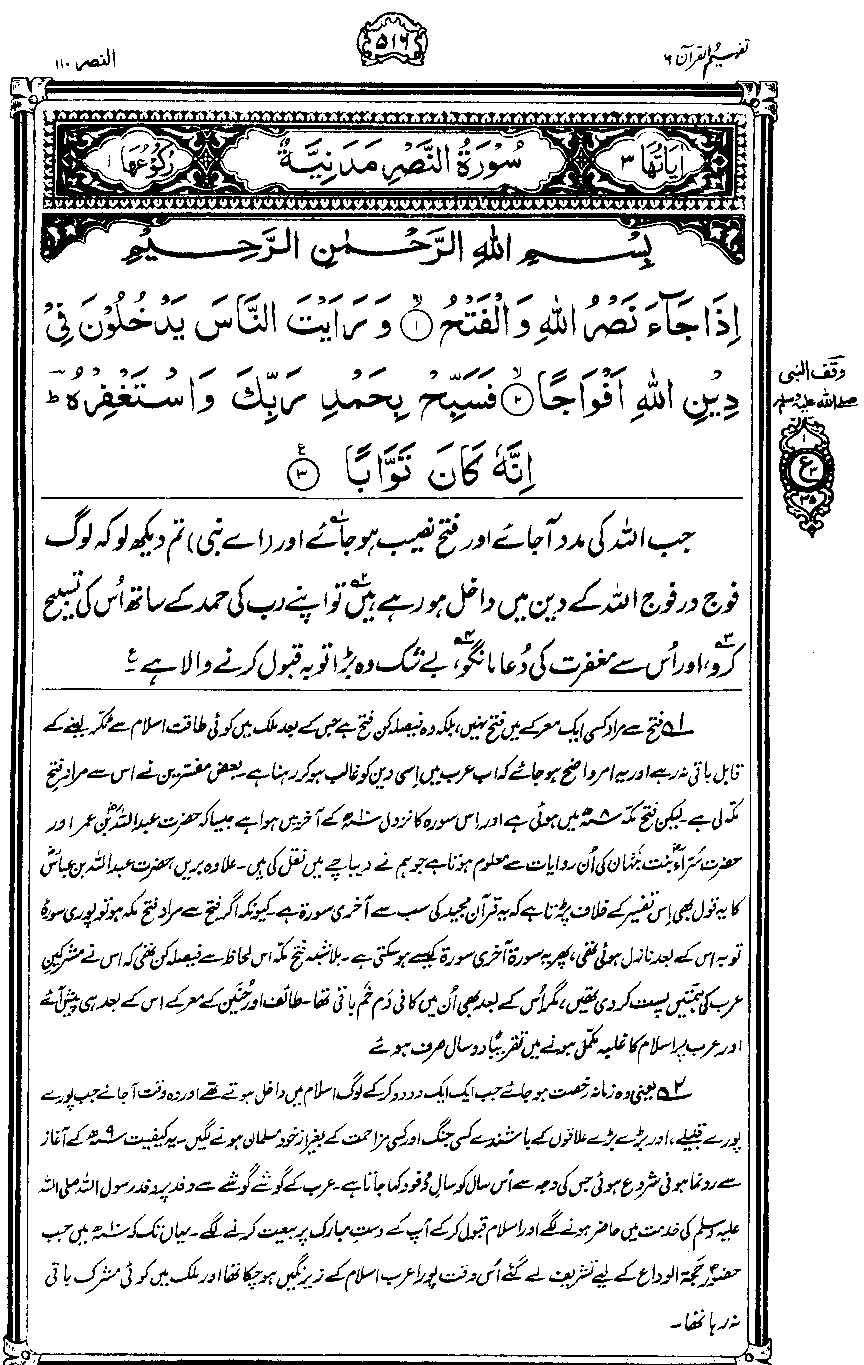 تفہیم القرآن ۶
۵۱۶
النصر ۱۱۰
اٰیَاتُهَا ۳
سُوْرَةُ النَّصْرِ مَدَنِيَّةٌ
رُكُوْعُهَا ۱
بِسْمِ اللهِ الرَّحْمٰنِ الرَّحِيْمِ
اِذَا جَآءَ نَصْرُ اللهِ وَالْفَتْحُ ۙ۱ وَرَاَيْتَ النَّاسَ يَدْخُلُوْنَ فِيْ
دِيْنِ اللهِ اَفْوَاجًا ۙ۲ فَسَبِّحْ بِحَمْدِ رَبِّكَ وَاسْتَغْفِرْهُ ؕ
اِنَّهٗ كَانَ تَوَّابًا ۳ ع
وقف النبی
صلی اللہ علیہ وسلم
۱
ع
۳۵
جب اللہ کی مدد آجائے اور فتح نصیب ہو جائے۱ اور (اے نبی) تم دیکھ لو کہ لوگ
فوج در فوج اللہ کے دین میں داخل ہو رہے ہیں۲ تو اپنے رب کی حمد کے ساتھ اُس کی تسبیح
کرو۳، اور اُس سے مغفرت کی دُعا مانگو۴، بے شک وہ بڑا توبہ قبول کرنے والا ہے ع
۱ فتح سے مراد کسی ایک معرکے میں فتح نہیں، بلکہ وہ فیصلہ کن فتح ہے جس کے بعد ملک میں کوئی طاقت اسلام سے ٹکر لینے کے
قابل باقی نہ رہے اور یہ امر واضح ہو جائے کہ اب عرب میں اِسی دین کو غالب ہو کر رہنا ہے۔ بعض مفسّرین نے اس سے مراد فتح
مکہ لی ہے۔ لیکن فتح مکہ ۸ھ میں ہوئی ہے اور اس سورہ کا نزول ۱۰ھ کے آخر میں ہوا ہے جیسا کہ حضرت عبداللہ بن عمر اور
حضرت سَرّاء بنت نَبْہان کی اُن روایات سے معلوم ہوتا ہے جو ہم نے دیباچے میں نقل کی ہیں۔ علاوہ بریں حضرت عبداللہ بن عباس
کا یہ قول بھی اِس تفسیر کے خلاف پڑتا ہے کہ یہ قرآن مجید کی سب سے آخری سورۃ ہے۔ کیونکہ اگر فتح سے مراد فتح مکہ ہو تو پوری سورۂ
توبہ اس کے بعد نازل ہوئی تھی، پھر یہ سورۃ آخری سورۃ کیسے ہو سکتی ہے۔ بلاشبہ فتح مکہ اس لحاظ سے فیصلہ کن تھی کہ اس نے مشرکینِ
عرب کی ہمتیں پست کر دی تھیں، مگر اُس کے بعد بھی اُن میں کافی دَم خَم باقی تھا۔ طائف اور حُنَین کے معرکے اس کے بعد ہی پیش آئے
اور عرب پر اسلام کا غلبہ مکمل ہونے میں تقریبًا دو سال صرف ہوئے
۲ یعنی وہ زمانہ رخصت ہو جائے جب ایک ایک دو دو کر کے لوگ اسلام میں داخل ہوتے تھے اور وہ وقت آجائے جب پورے
پورے قبیلے، اور بڑے بڑے علاقوں کے باشندے کسی جنگ اور کسی مزاحمت کے بغیر از خود مسلمان ہونے لگیں۔ یہ کیفیت ۹ھ کے آغاز
سے رونما ہونی شروع ہوئی جس کی وجہ سے اُس سال کو سالِ وُفود کہا جاتا ہے۔ عرب کے گوشے گوشے سے وفد پر وفد رسول اللہ صلی اللہ
علیہ وسلم کی خدمت میں حاضر ہونے لگے اور اسلام قبول کر کے آپ کے دستِ مبارک پر بیعت کرنے لگے۔ یہاں تک کہ ۱۰ھ میں جب
حضور حجۃ الوداع کے لیے تشریف لے گئے اُس وقت پورا عرب اسلام کے زیرنگیں ہو چکا تھا اور ملک میں کوئی مشرک باقی
نہ رہا تھا۔